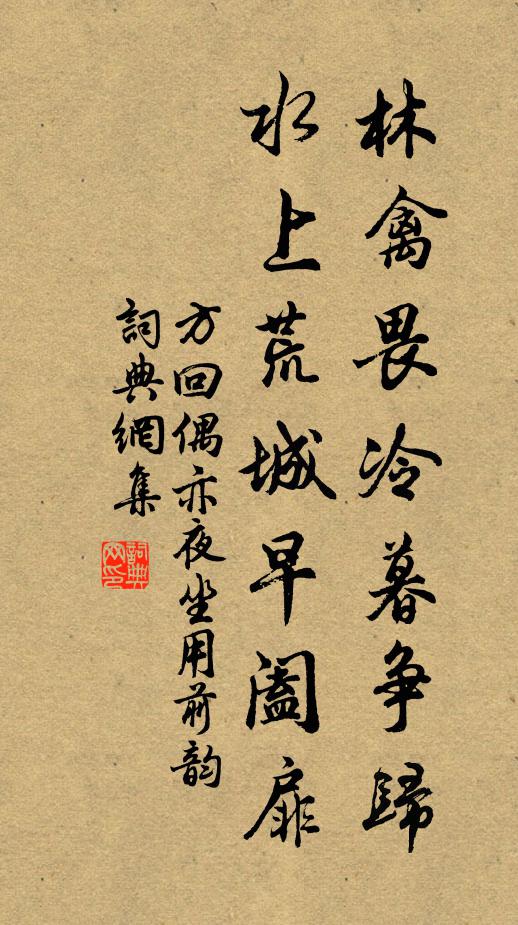 林禽畏冷暮争歸
水上荒城早阖扉
方回偶亦夜坐用前韵
詞典網集
詞典网印